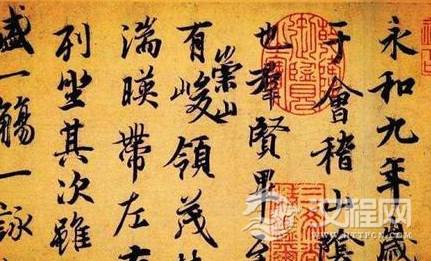 永和九年歲
于會稽山陰
也羣賢畢至
有崇山峻領茂林
湍暎帶左右
列坐其次雖
盛一觴一詠
汉程网
HTTPCN.COM